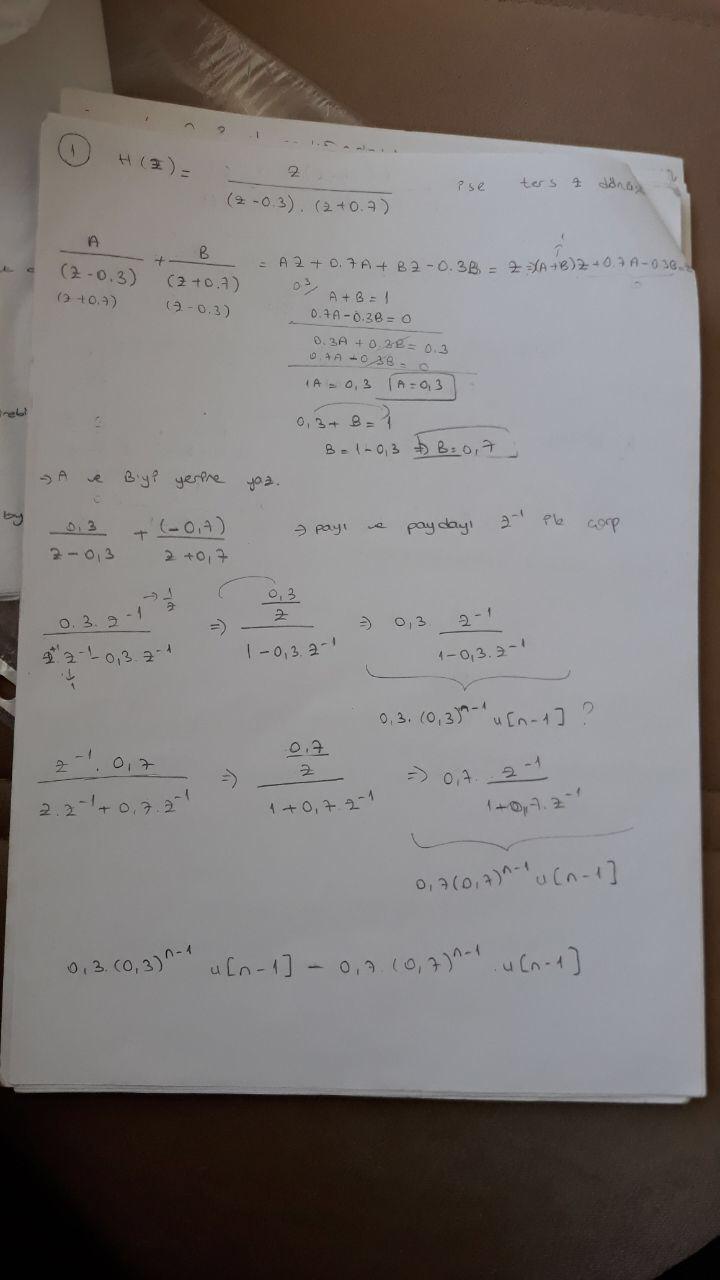 ① H(z) = z / ((z-0.3).(z+0.7)) ise ters z
A/(z-0.3) + B/(z+0.7) = Az+0.7A+Bz-0.3B = z ⇒ (A+B)z+0.7A-0.3B=
(z+0,7) (z-0.3)
0.3/ A+B=1
0.7A-0.3B=0
0.3A+0.3B=0.3
0.7A-0.3B=0
1A=0,3 A=0,3
0,3+B=1
B=1-0,3 ⇒ B=0,7
→ A ve B'yi yerine yaz.
0,3/(z-0,3) + (-0,7)/(z+0,7) ⇒ payı ve paydayı z⁻¹ ile çarp
0.3.z⁻¹/(z⁺¹.z⁻¹-0,3.z⁻¹) → 1/z ⇒ (0,3/z)/(1-0,3.z⁻¹) ⇒ 0,3. z⁻¹/(1-0,3.z⁻¹)
↓
1
0,3.(0,3)ⁿ⁻¹ u[n-1] ?
z⁻¹.0,7/(z.z⁻¹+0,7.z⁻¹) ⇒ (0,7/z)/(1+0,7.z⁻¹) ⇒ 0,7. z⁻¹/(1+0,7.z⁻¹)
0,7(0,7)ⁿ⁻¹ u[n-1]
0,3.(0,3)ⁿ⁻¹ u[n-1] - 0,7.(0,7)ⁿ⁻¹.u[n-1]
by